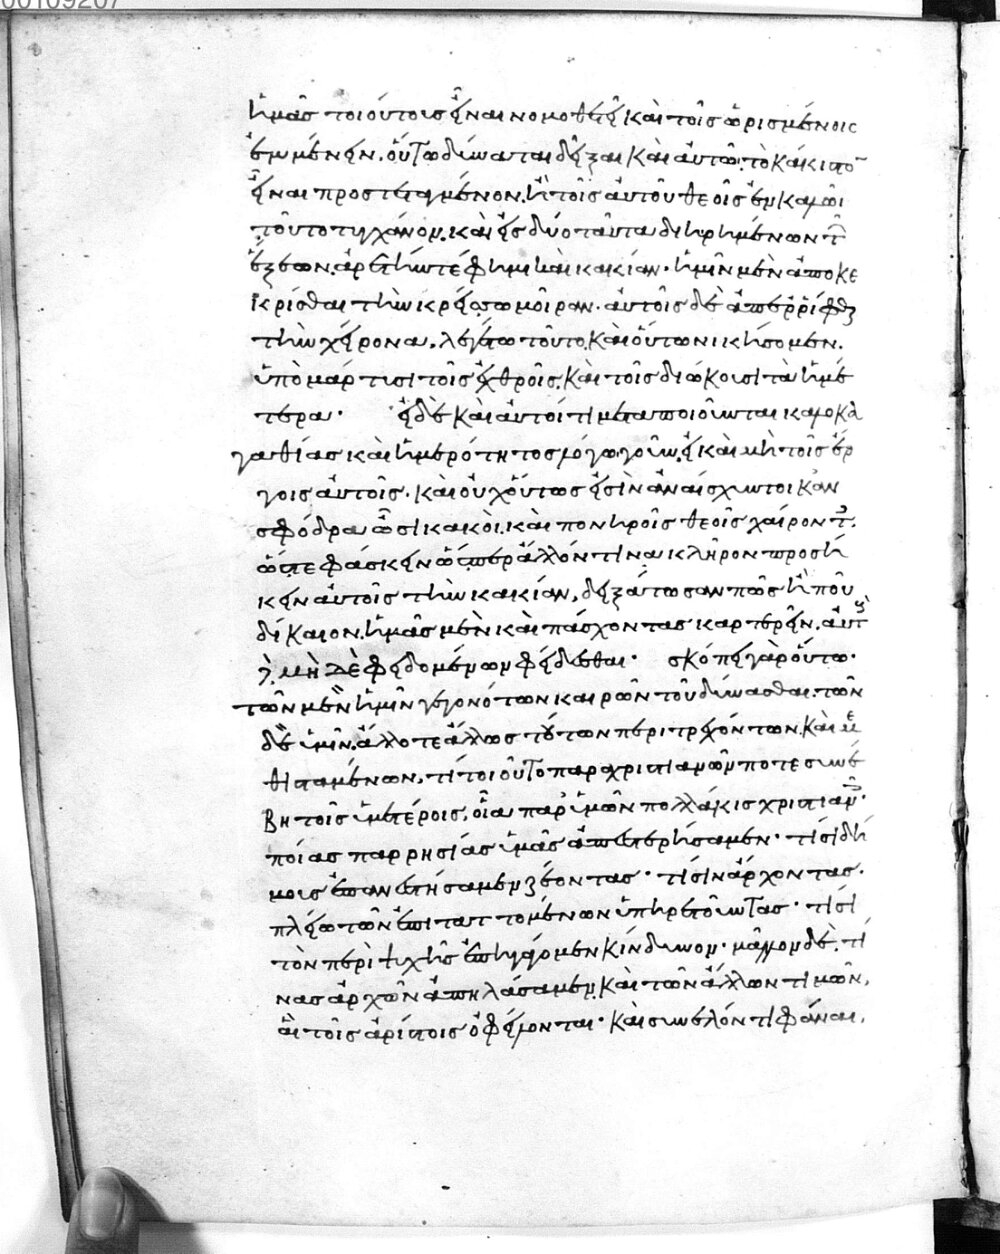 00109207
ἡμᾶς τοιούτους εἶναι νομοθετεῖ καὶ τοῖς ὡρισμένοις
ἐμμένειν. οὕτω δύναται δεῖξαι καὶ αὐτῶ τὸ κακίστο
εἶναι προστεταγμένον. ἢ τοῖς αὐτοῦ θεοῖς ἐν καλῶ
τοῦτο τυγχάνον. καὶ εἰς δύο ταῦτα διῃρημένων τῶν
ἕξεων. ἀρετήν τέ φημι καὶ κακίαν. ἡμῖν μὲν ἀποκε
κρίσθαι τὴν κρείττω μοῖραν. αὐτοῖς δὲ ἀπερρίφθαι
τὴν χείρονα. λεγέτω τοῦτο. καὶ οὕτω νικήσομεν.
ὑπὸ μάρτυσι τοῖς ἐχθροῖς. καὶ τοῖς διώκουσι τὰ ἡμέ
τερα. εἰ δὲ καὶ αὐτοί τι μεταποιοῦνται καλοκἀ
γαθίας καὶ ἡμερότητος λόγῳ γοῦν, εἰ καὶ μὴ τοῖς ἔρ
γοις αὐτοῖς. καὶ οὐχ οὕτως εἰσὶν ἀναίσχυντοι κἂν
σφόδρα ὦσι κακοί. καὶ πονηροῖς θεοῖς χαίροντες.
ὥστε φάσκειν ὥσπερ ἄλλόν τινα κλῆρον προσή
κειν αὐτοῖς τὴν κακίαν, δειξάτωσαν πῶς ἢ ποῦ
δίκαιον. ἡμᾶς μὲν καὶ πάσχοντας καρτερεῖν. αὐτοὺς
δὲ μηδὲ φειδομένων φείδεσθαι. σκόπει γὰρ οὕτω.
τῶν μὲν ἡμῖν γεγονότων καιρῶν τοῦ δύνασθαι. τῶν
δὲ ὑμῖν. ἄλλοτε ἄλλως τούτων περιτρεχόντων. καὶ με
θισταμένων, τί τοιοῦτο παρὰ χριστιανῶν ποτε συνέ
βη τοῖς ὑμετέροις, οἷα παρ' ὑμῶν πολλάκις χριστιανοῖς.
ποίας παρρησίας ὑμᾶς ἀπεστερήσαμεν. τίσι δή
μους ἐπανεστήσαμεν ζέοντας. τίσιν ἄρχοντας.
πλείω τῶν ἐπιταττομένων ὑπηρετοῦντας. τίσι
τὸν περὶ ψυχῆς ἐπηγάγομεν κίνδυνον. μᾶλλον δὲ. τί
νας ἀρχῶν ἀπηλάσαμεν. καὶ τῶν ἄλλων τιμῶν,
αἳ τοῖς ἀρίστοις ὀφείλονται. καὶ συνελόντι φάναι,